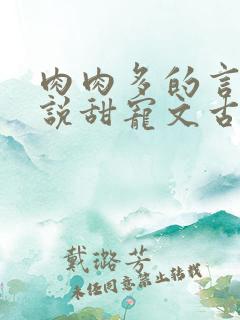 肉肉多的言
说甜宠文古
戴璐芳
未经同意禁止转载